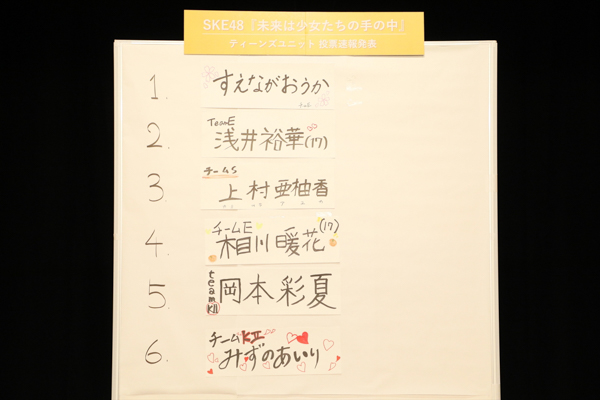 SKE48『未来は少女たちの手の中』
ティーンズユニット 投票速報発表
1. すえながおうか
TeamE
2. 浅井裕華(17)
チームS
3. 上村亜柚香
チームE
4. 相川暖花(17)
team KII
5. 岡本彩夏
チームKII
6. みずのあいり